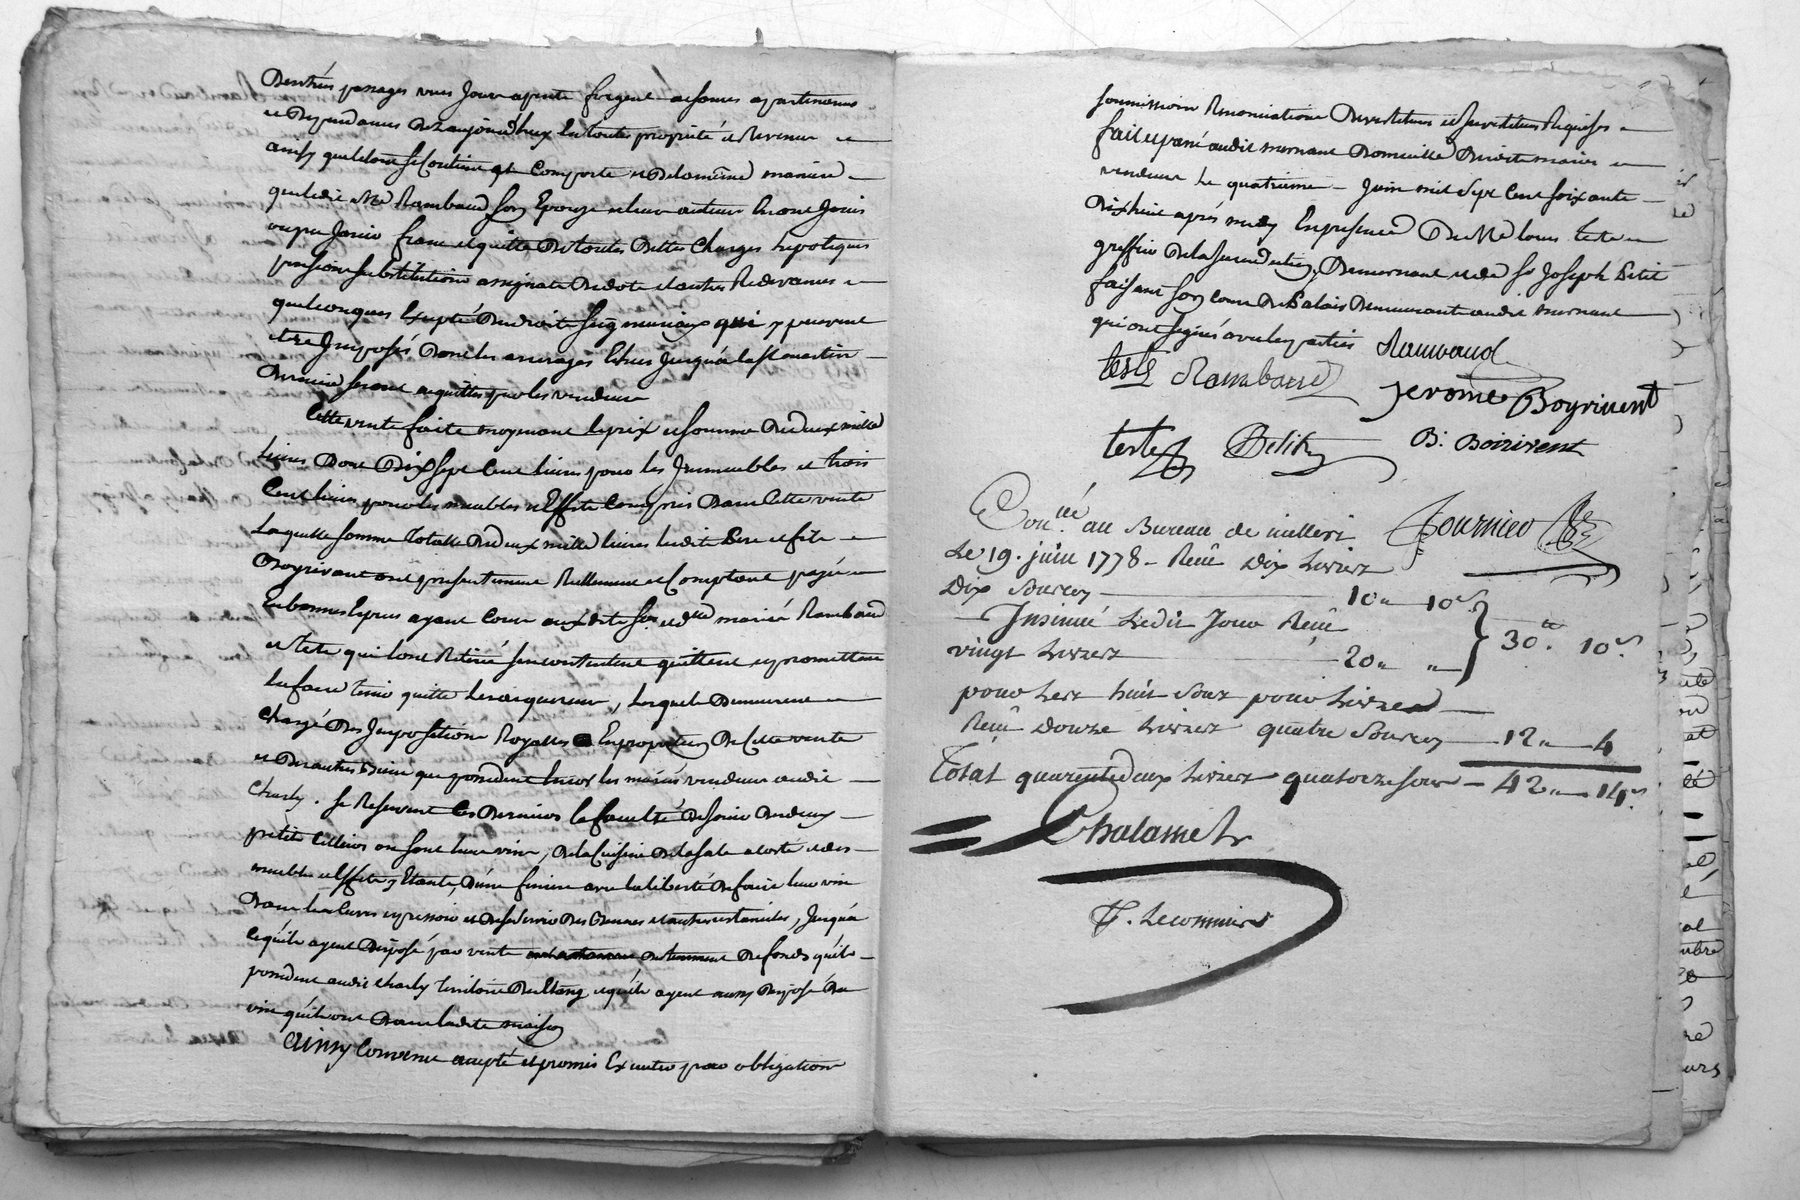 Dentrées passages vues Jours apents frigent aisances apartenances
et Dependances Dezaujourdhuy En toute proprieté et Revenu et
ainsy quelle se Contient et Comporte et De la même manière
que ledit Me Rambaud son Epouse et leur auteur En ont Jouis
ou pu Jouir franc et quitte De toutes Dettes Charges hipoteques
pensions substitutions assignats De dote et autres Redevances
quelconques Excepté Des droits seigneuriaux qui y peuvent
etre Imposés Dont les arrerages Echus Jusqu'a la st martin
Derniere seront acquittés par les vendeurs
Cette vente faite moyenant le prix et somme De deux mille
livres Dont Dix sept Cent livres pour les Immeubles et trois
Cent livres pour les meubles et Effets Compris Dans Cette vente
Laquelle somme Totalle De deux mille livres lesdits Pere et fils
Boyrivent ont presentement Reellement et Comptant payé
En bonnes Especes ayant Cours auxdits Sr et dlle mariés Rambaud
et Teste qui l'ont Retiré s'en contentent quittent et promettent
En faire tenir quitte les acquereurs, Lesquels Demeurent
Chargé Des Impositions Royalles En proportion De Cette vente
et Des autres Biens que possedent Encor les mariés vendeurs audit
Charly. se Reservent Ces Derniers la faculté De Jouir De deux
petits Celliers où sont leur vin, De la Cuisine De la sale a coté et des
meubles et Effets y Etants, D'une feniere avec la liberté De faire leur vin
Dans les Cuves et pressoir et De se servir Des Bennes et autres ustanciles, Jusqu'a
ce qu'ils ayent Disposé par vente de fonds qu'ils
possedent audit Charly territoire De Letang et qu'ils ayent aussy Disposé Du
vin qu'ils ont Dans ladite maison
Ainsy Convenu accepté et promis Executer par obligation
soumission Renonciation Devestiture et Investiture Requises
fait et passé audit mornant Domicille Desdits mariés
vendeurs Le quatrieme Juin mil Sept Cent soixante
Dix huit après midy En presence De Me louis teste
greffier De la Jurisdiction De mornant et de Sr Joseph Petit
faisant son Cour De Palais Demeurants audit mornant
qui ont signés avec les parties Rambaud
teste Rambaud Jerome Boyrivent
teste Petit B: Boirivent
Con.llé au Bureau de millery Fournier
Le 19. juin 1778 - Reçû Dix Livres
Dix Sous 10 " 10 s
Insinué Ledit Jour Reçû 30 tt 10 s
vingt Livres 20 " "
pour Les huit Sous pour Livre
Reçû Douze Livres quatre Sous 12 " 4
Total quarente deux Livres quatorze sous - 42 " 14 s
Chalamel